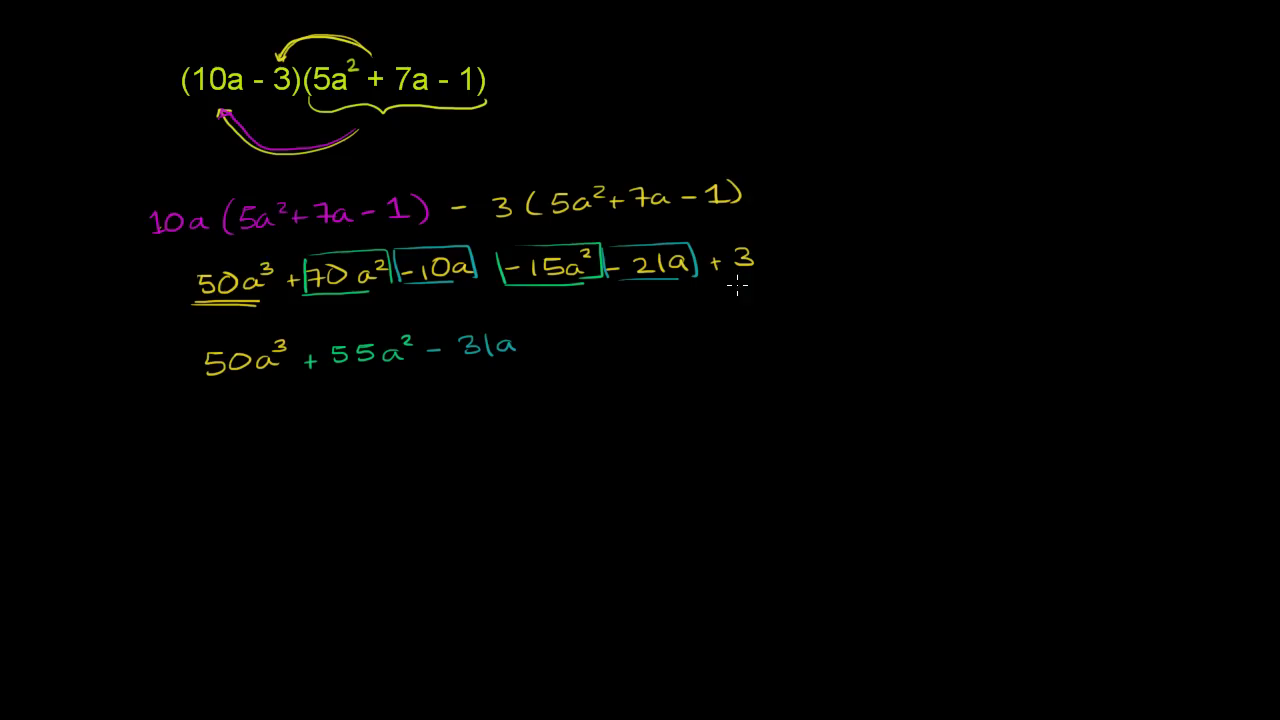 (10a - 3)(5a² + 7a - 1)
10a (5a² + 7a - 1) - 3 (5a² + 7a - 1)
50a³ + 70a² - 10a - 15a² - 21a + 3
50a³ + 55a² - 31a